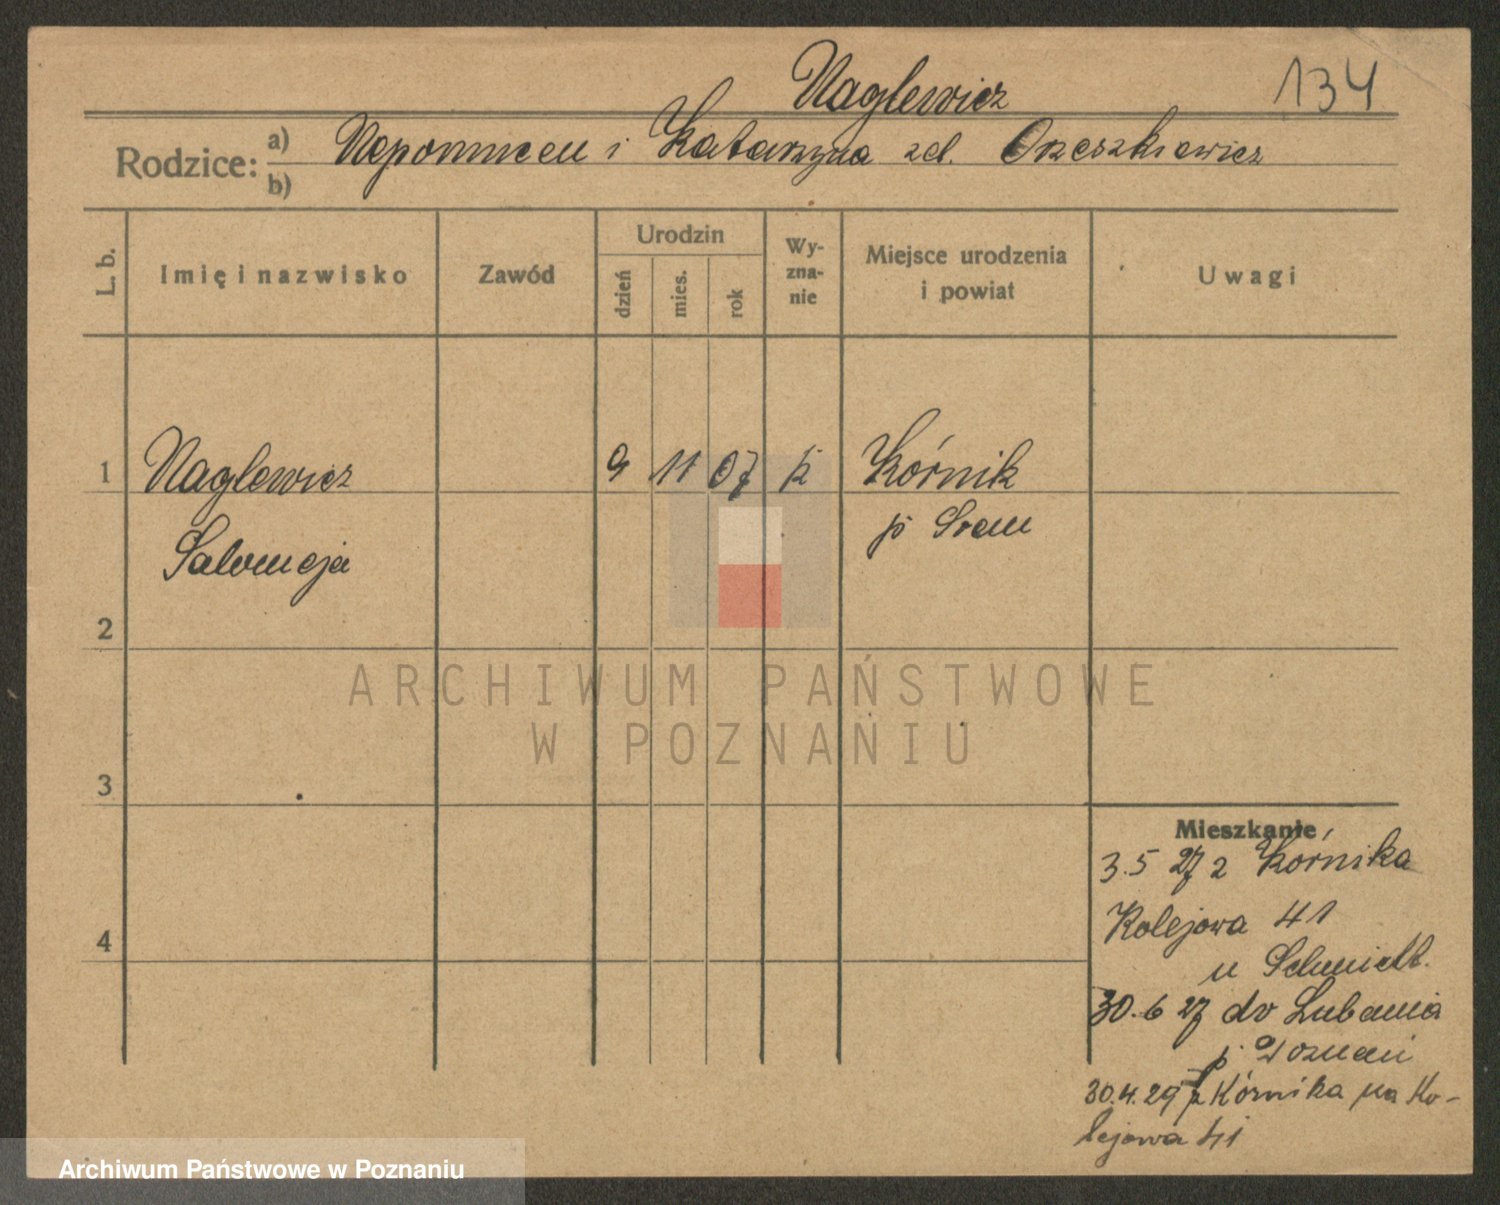 Naglewicz 134
Rodzice: a) Nepomucen i Katarzyna zd. Orzeszkiewicz
b)
L. b. Imię i nazwisko Zawód Urodzin dzień mies. rok Wy-zna-nie Miejsce urodzenia i powiat Uwagi
1 Naglewicz 9 11 07 k Kórnik
Salomeja p Srem
2
ARCHIWUM PAŃSTWOWE
W POZNANIU
3
Mieszkanie
3.5 27 z Kórnika
Kolejowa 41
4
u Schmidt.
30.6 27 do Lubania
p Poznań
30.4.29 z Kórnika na Ko-
lejowa 41
Archiwum Państwowe w Poznaniu